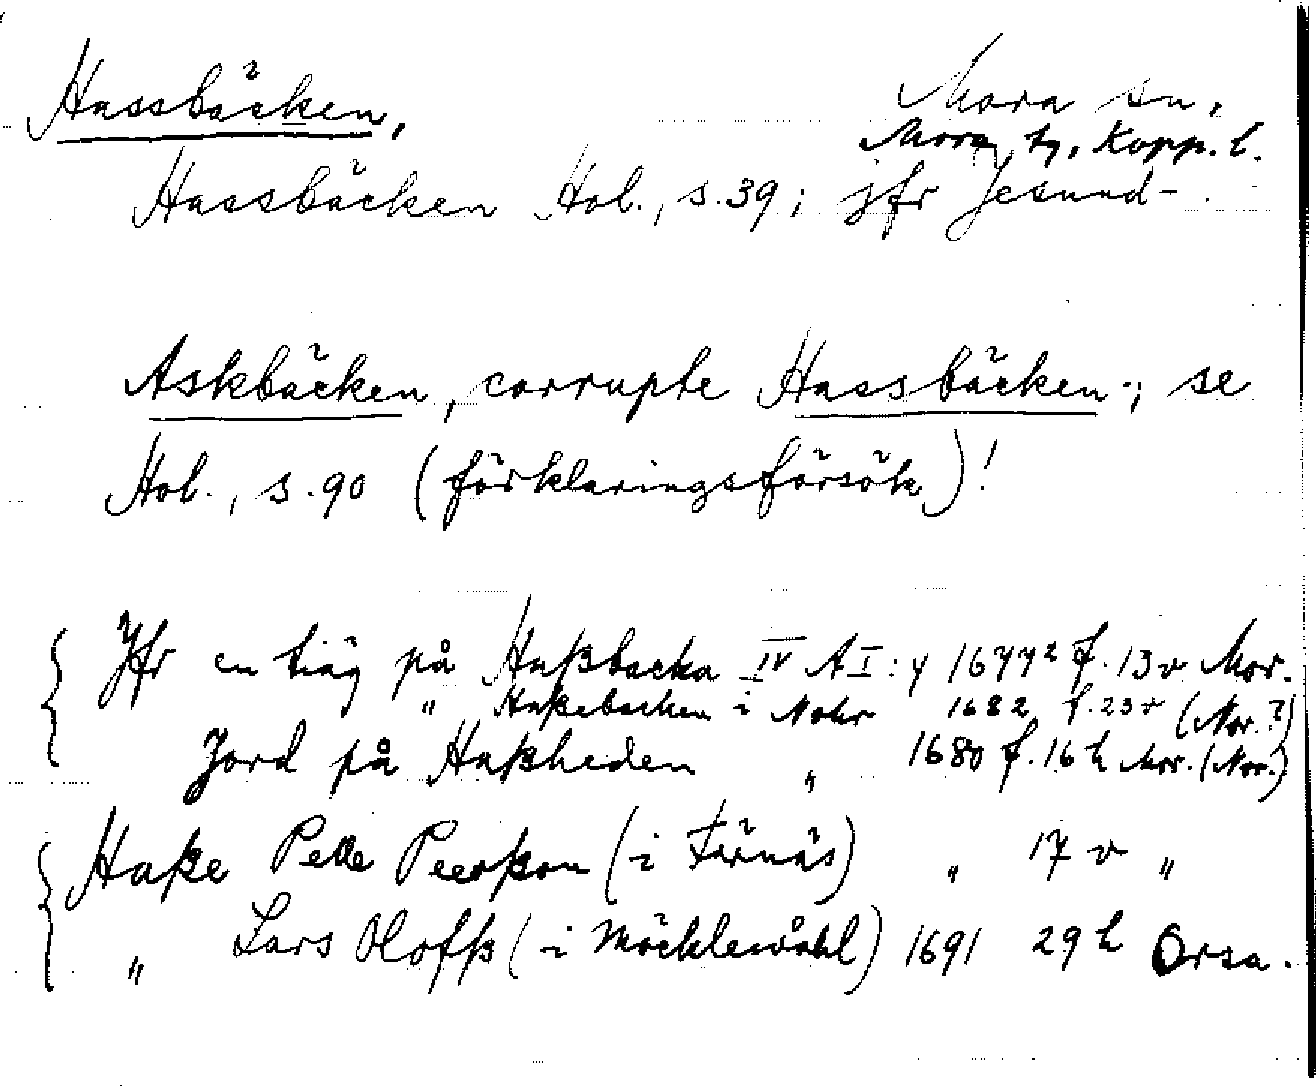 Hassbäcken, Mora sn,
Mora tg, Kopp. l.
Hassbäcken Hol., s. 39; jfr Jesund-
Askbäcken, corrupte Hassbäcken; se
Hol., s. 90 (förklaringsförsök)!
Jfr en täg på Haßbacka IV A I: 4 1677² f. 13 v Mor.
" Haßebacken i Nohr 1682 f. 23 v (Nor.?)
Jord på Haßheden " 1680 f. 16 h Mor. (Nor.)
Haße Pelle Peerßon (i Färnäs) " 17 v "
" Lars Oloffß (i Mäcklewåhl) 1691 29 h Orsa.